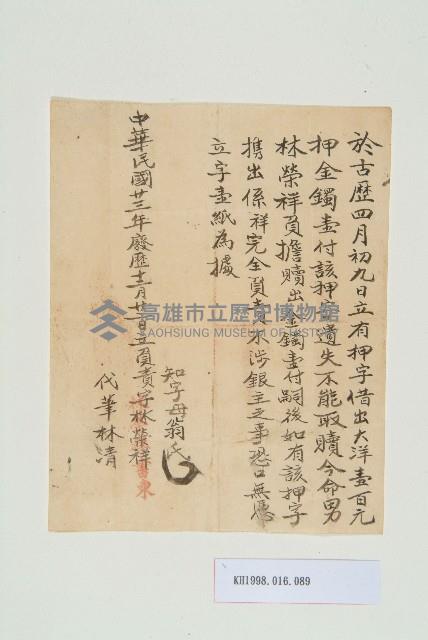 於古歷四月初九日立有押字借出大洋壹百元
押金鐲壹付該押字遺失不能取贖今命男
林榮祥負擔贖出金鐲壹付嗣後如有該押字
携出係祥完全負責不涉銀主之事恐口無憑
立字壹紙為據
知字母翁氏
中華民國廿三年廢歷十二月廿日立負責字林榮祥
代筆林清
高雄市立歷史博物館
KAOHSIUNG MUSEUM OF HISTORY
KH1998.016.089